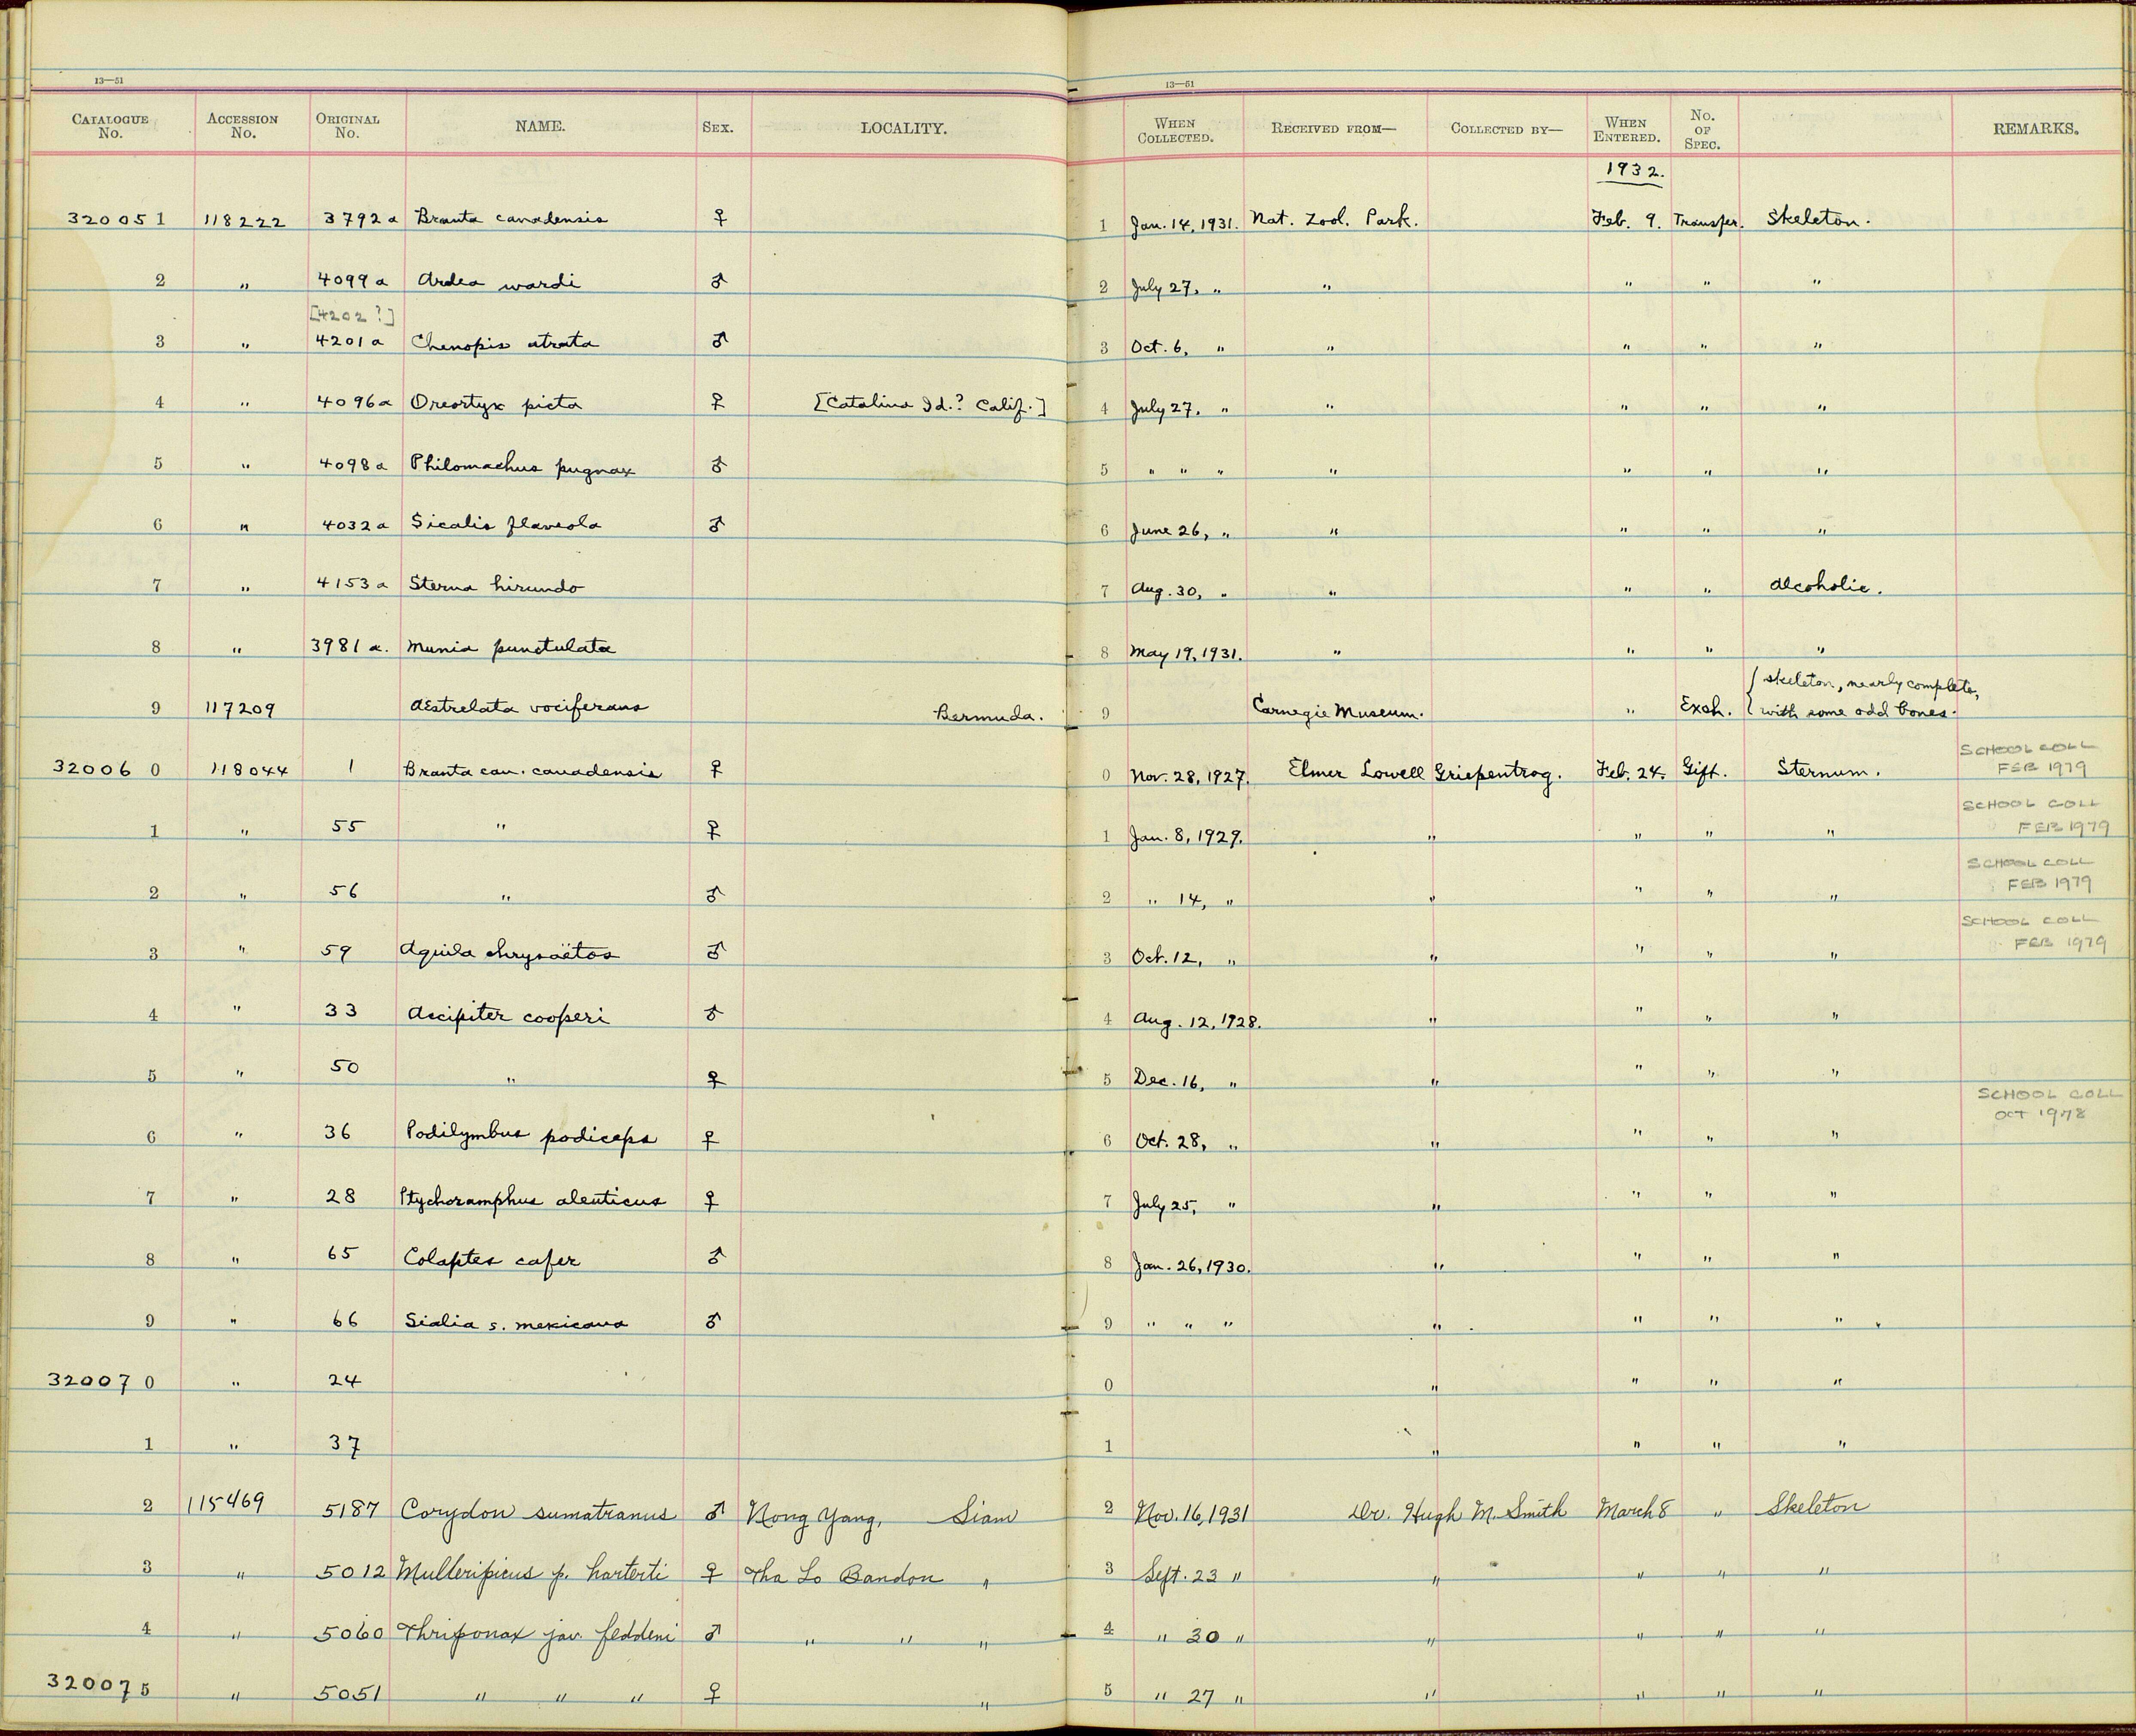 13—51
13—51
CATALOGUE No. ACCESSION No. ORIGINAL No. NAME. SEX. LOCALITY. WHEN COLLECTED. RECEIVED FROM— COLLECTED BY— WHEN ENTERED. No. OF SPEC. REMARKS.
1932.
320051 118222 3792a Branta canadensis ♀ 1 Jan. 14, 1931. Nat. Zool. Park. Feb. 9. Transfer. Skeleton.
2 " 4099a Ardea wardi ♂ 2 July 27, " " " " "
[4202?]
3 " 4201a Chenopis atrata ♂ 3 Oct. 6, " " " " "
4 " 4096a Oreortyx picta ♀ [Catalina Id.? Calif.] 4 July 27, " " " " "
5 " 4098a Philomachus pugnax ♂ 5 " " " " " " "
6 " 4032a Sicalis flaveola ♂ 6 June 26, " " " " "
7 " 4153a Sterna hirundo 7 Aug. 30, " " " " Alcoholic.
8 " 3981a. Munia punctulata 8 May 19, 1931. " " " "
9 117209 Æstrelata vociferans Bermuda. 9 Carnegie Museum. " Exch. { Skeleton, nearly complete, with some odd bones.
320060 118044 1 Branta can. canadensis ♀ 0 Nov. 28, 1927. Elmer Lowell Griepentrog. Feb. 24. Gift. Sternum. SCHOOL COLL FEB 1979
1 " 55 " ♀ 1 Jan. 8, 1929. " " " " SCHOOL COLL FEB 1979
2 " 56 " ♂ 2 " 14, " " " " " SCHOOL COLL FEB 1979
3 " 59 Aquila chrysaëtos ♂ 3 Oct. 12, " " " " " SCHOOL COLL FEB 1979
4 " 33 Accipiter cooperi ♂ 4 Aug. 12, 1928. " " " "
5 " 50 " ♀ 5 Dec. 16, " " " " "
6 " 36 Podilymbus podiceps ♀ 6 Oct. 28, " " " " " SCHOOL COLL OCT 1978
7 " 28 Ptychoramphus aleuticus ♀ 7 July 25, " " " " "
8 " 65 Colaptes cafer ♂ 8 Jan. 26, 1930. " " " "
9 " 66 Sialia s. mexicana ♂ 9 " " " " " " "
320070 " 24 0 " " " "
1 " 37 1 " " " "
2 115469 5187 Corydon sumatranus ♂ Nong Yang, Siam 2 Nov. 16, 1931 Dr. Hugh M. Smith March 8 " Skeleton
3 " 5012 Mulleripicus p. harterti ♀ Tha Lo Bandon " 3 Sept. 23 " " " " "
4 " 5060 Thriponax jav. feddeni ♂ " " " 4 " 30 " " " " "
320075 " 5051 " " " ♀ " 5 " 27 " " " " "